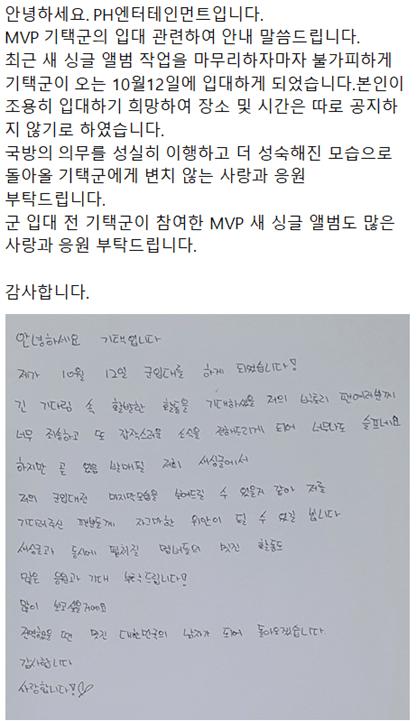 안녕하세요. PH엔터테인먼트입니다.
MVP 기택군의 입대 관련하여 안내 말씀드립니다.
최근 새 싱글 앨범 작업을 마무리하자마자 불가피하게
기택군이 오는 10월12일에 입대하게 되었습니다.본인이
조용히 입대하기 희망하여 장소 및 시간은 따로 공지하
지 않기로 하였습니다.
국방의 의무를 성실히 이행하고 더 성숙해진 모습으로
돌아올 기택군에게 변치 않는 사랑과 응원
부탁드립니다.
군 입대 전 기택군이 참여한 MVP 새 싱글 앨범도 많은
사랑과 응원 부탁드립니다.
감사합니다.
안녕하세요 기택입니다
제가 10월 12일 군입대를 하게 되었습니다!
긴 기다림 속 활발한 활동을 기대하셨을 저의 팬여러분께
너무 죄송하고 또 갑작스러운 소식을 전해드리게 되어 너무나도 슬프네요
하지만 곧 있음 발매될 저희 새싱글에서
저의 군입대전 마지막모습을 보여드릴 수 있을거 같아 저를
기다려주신 팬분들께 자그마한 위안이 될 수 있길 빕니다
새싱글과 동시에 펼쳐질 멤버들의 멋진 활동도
많은 응원과 기대 부탁드립니다!
많이 보고싶을거에요
전역했을 땐 멋진 대한민국의 남자가 되어 돌아오겠습니다
감사합니다
사랑합니다!♡